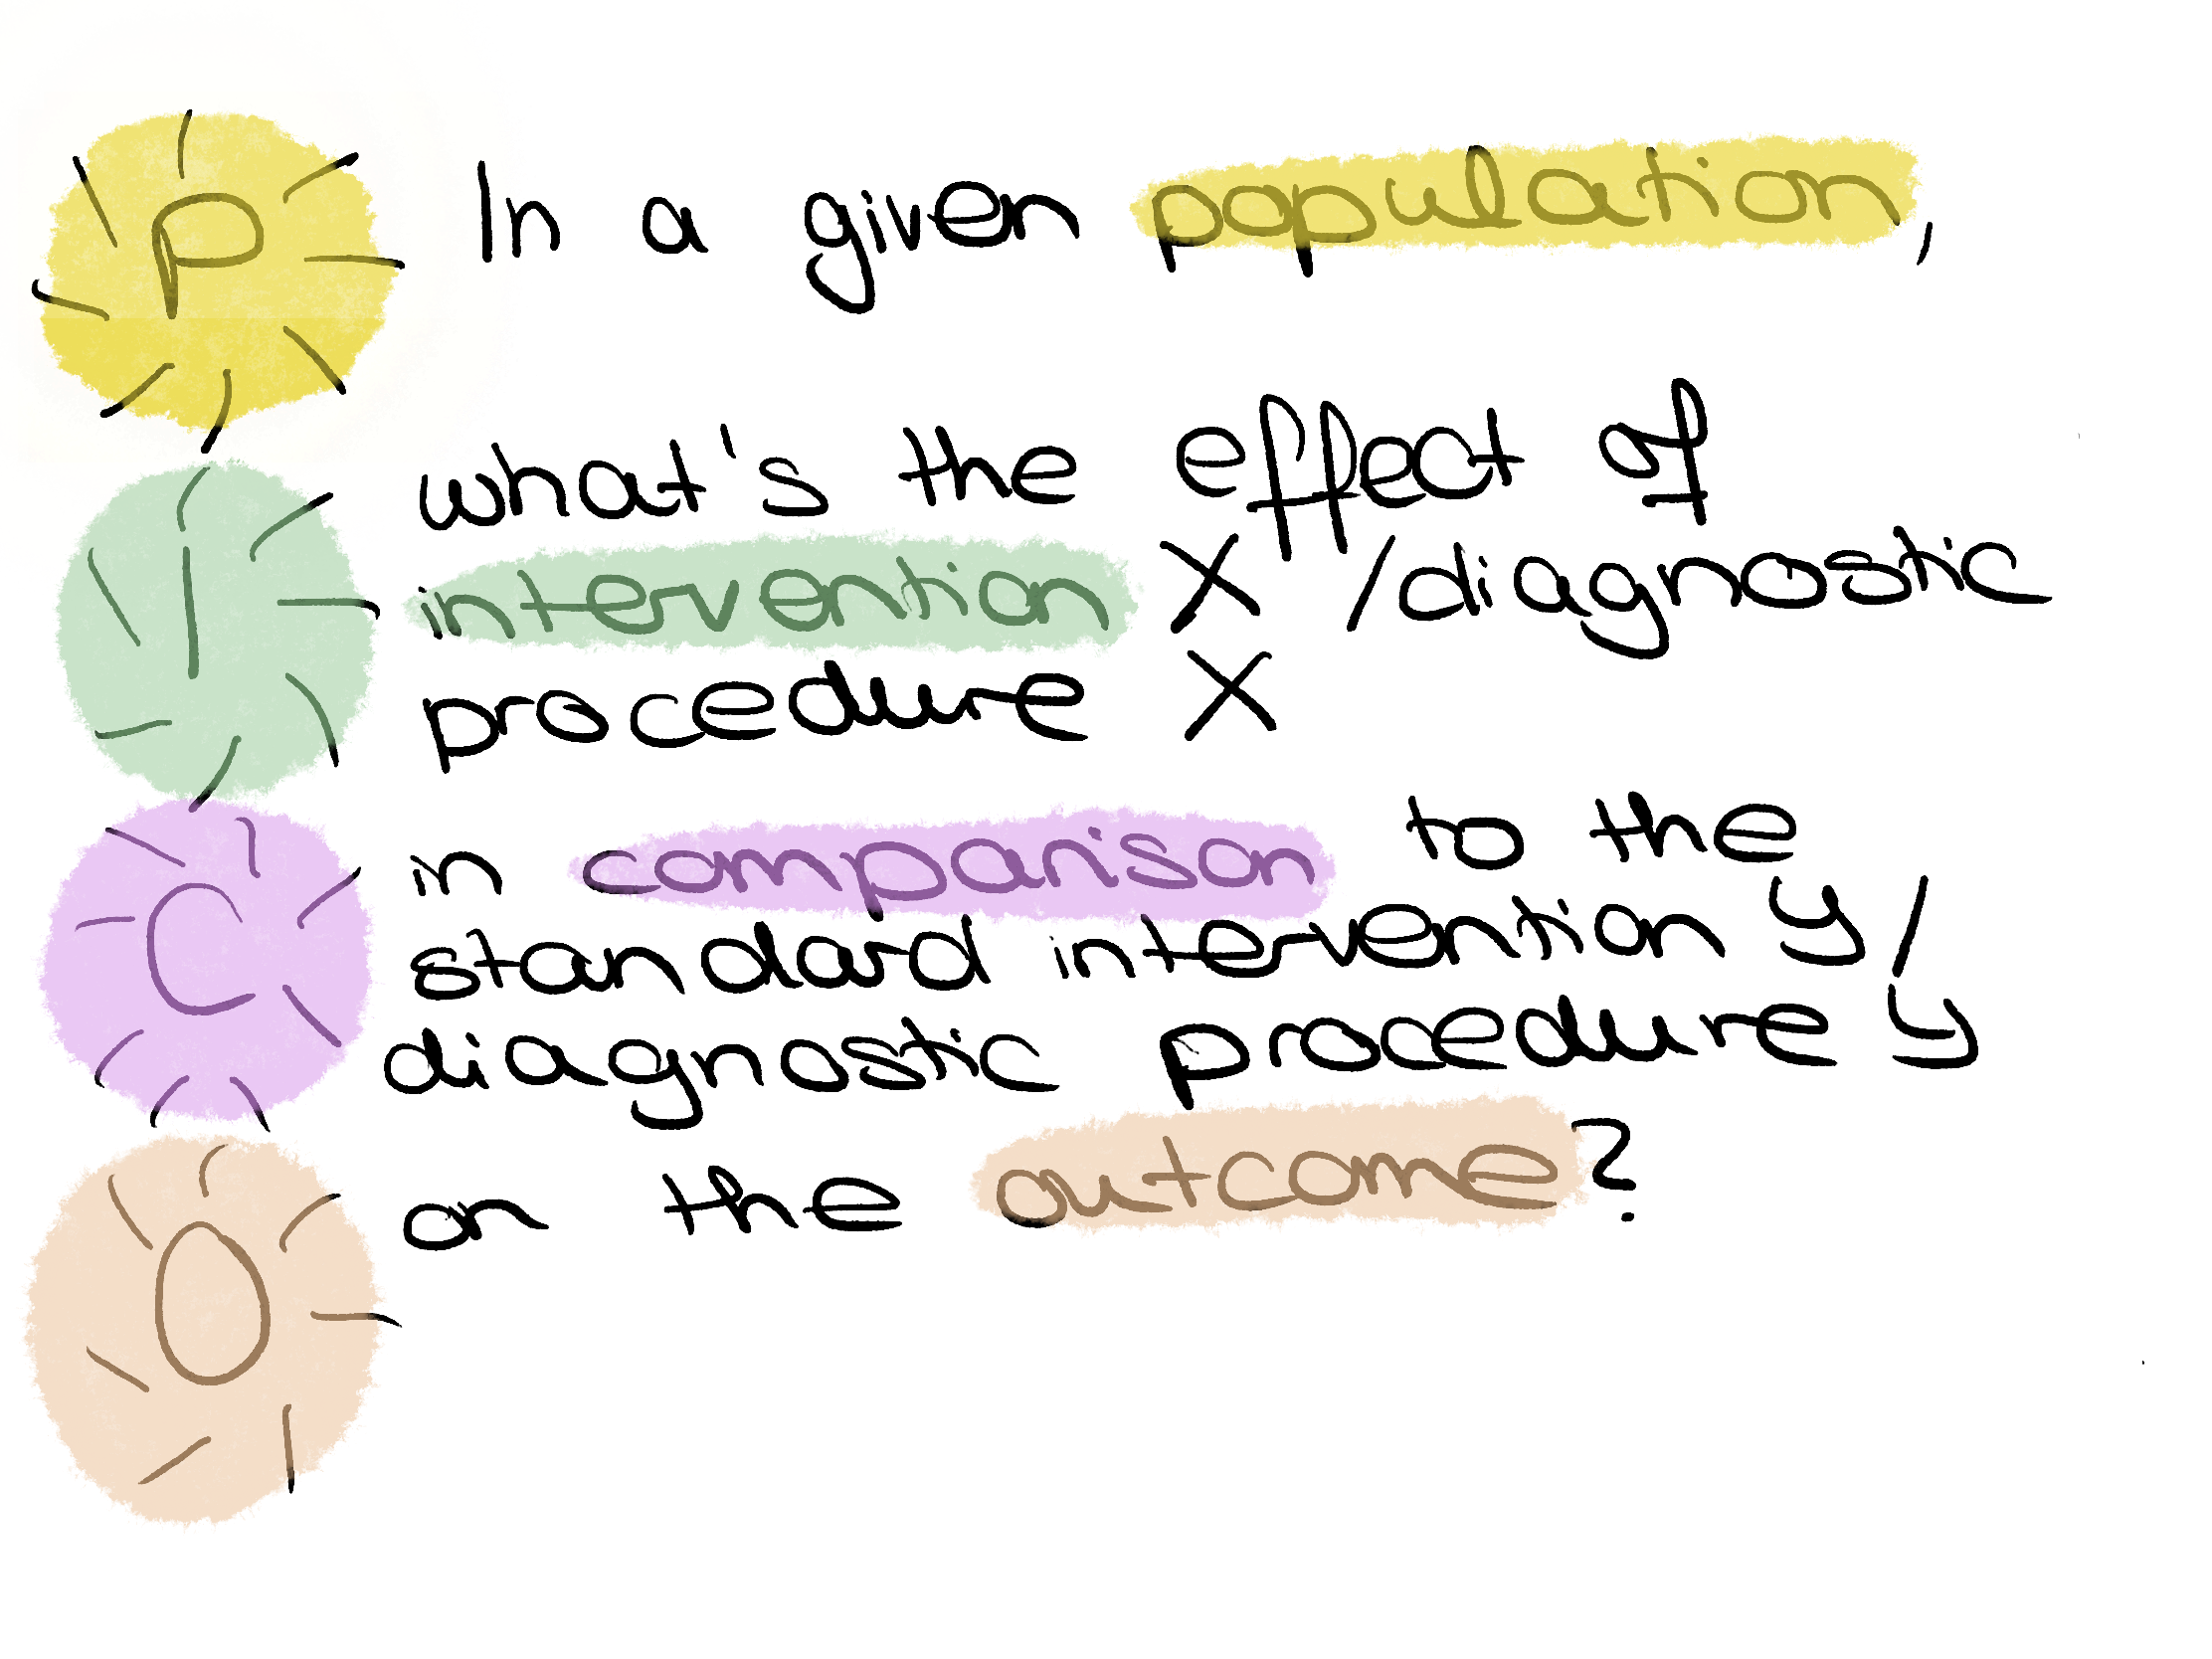 P
In a given population,
I
what's the effect of
intervention X /diagnostic
procedure X
C
in comparison to the
standard intervention y/
diagnostic procedure y
O
on the outcome?